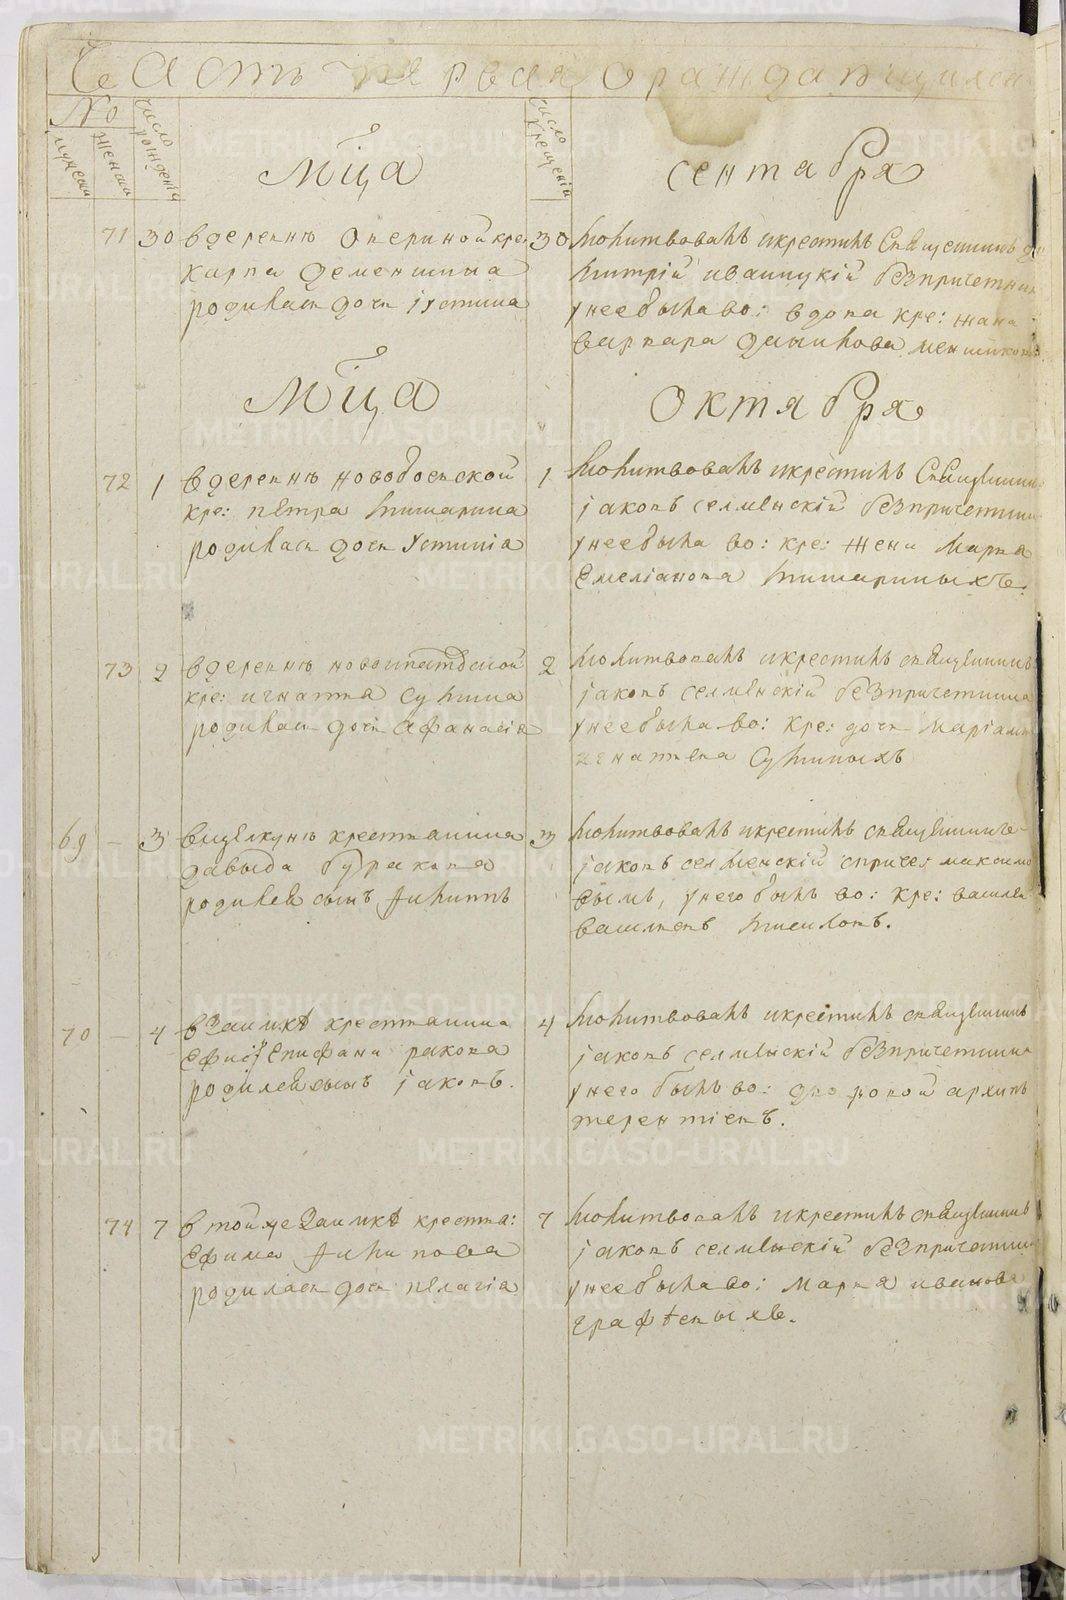 Часть первая о раждающихся
No
мужеска
женска
число рождения
число крещения
Мца сентября
71 30 в деревнѣ Опериной кре:
Карпа Деменшина
родилась дочь Іустина
30 Молитвовалъ и крестилъ священникъ Ди
митрій Иваницкій без причетник
у нее была во: вдова кре: жана
Варвара Дмынова меншикова
Мца Октября
72 1 в деревнѣ новобоевской
кре: петра Тишарина
родилась дочь Устинiа
1 Молитвовалъ и крестилъ священникъ
Іаковъ селменскій без причетника
у нее была во: кре: жена Марѳа
Емеліанова Тишариныхъ.
73 2 в деревнѣ новоипатовской
кре: игнатія Сутина
родилась дочь Афанасія
2 Молитвовалъ и крестилъ священникъ
Іаковъ селменскій без причетника
у нее была во: кре: дочь Маріамна
игнатьева Сутиныхъ
69 — 3 в щелкунѣ крестианина
давыда буракова
родился сынъ Филиппъ
3 Молитвовалъ и крестилъ священникъ
Іаковъ селменскій с причет максимо
вымъ, у него былъ во: кре: василей
Васильевъ Киселовъ.
70 — 4 в Заимкѣ крестианина
Епифана ракова
родился сынъ Іаковъ.
4 Молитвовалъ и крестилъ священникъ
Іаковъ селменскій без причетника
у него былъ во: дворовой архипъ
терентіевъ.
74 7 в той же Заимкѣ крестиа:
Ефима Филипова
родилась дочь пелагіа
7 Молитвовалъ и крестилъ священникъ
Іаковъ селменскій без причетника
у нее была во: Марѳа иванова
графѣевыхъ.
METRIKI.GASO-URAL.RU